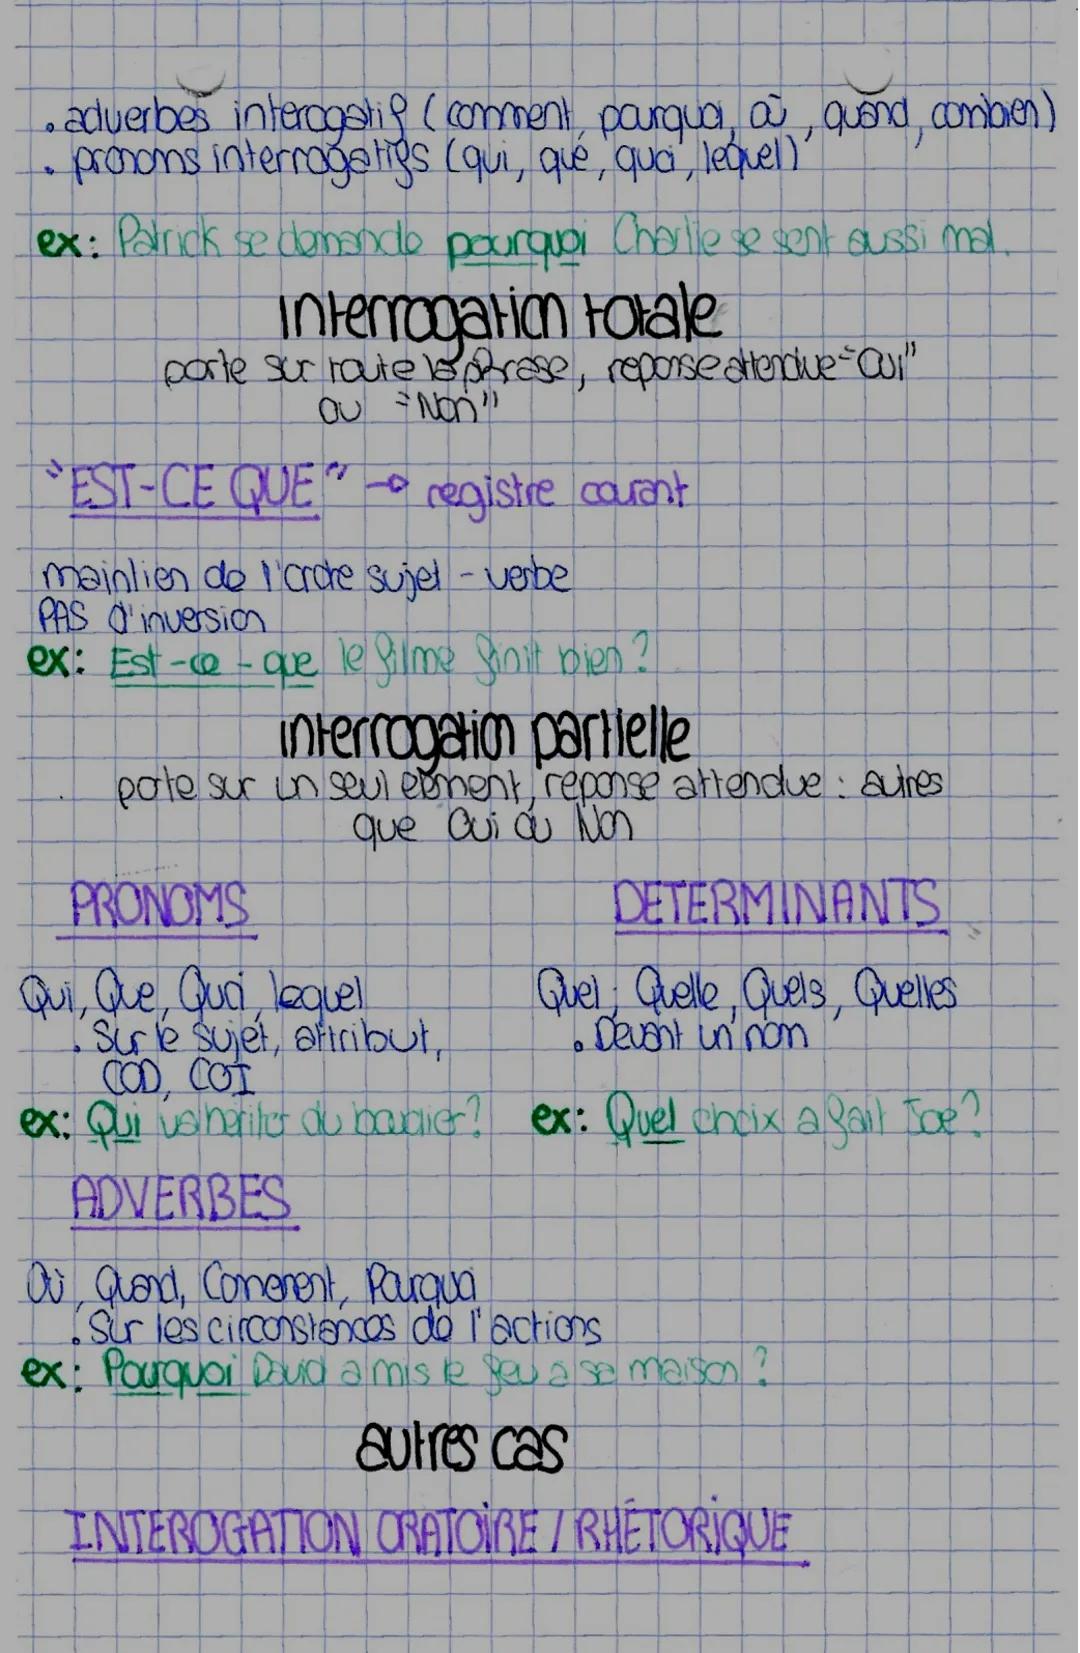 . adverbes interogatif (comment, pourquoi, où, quand, combien)
. pronoms interrogatifs (qui, que, quoi, lequel)
ex: Patrick se demande pourquoi Charlie se sent aussi mal.
interrogation totale
porte sur toute la phrase, reponse attendue "Oui"
ou "Non"
"EST-CE QUE" → registre courant
maintien de l'ordre sujet - verbe
PAS d'inversion
ex: Est-ce-que le filme finit bien ?
interrogation partielle
porte sur un seul element, réponse attendue : autres
que Oui ou Non
PRONOMS
DETERMINANTS
Qui, Que, Quoi, lequel
Quel, Quelle, Quels, Quelles
. Sur le sujet, attribut,
. Devant un nom
COD, COI
ex: Qui va hériter du             ?
ex: Quel choix a fait Joe ?
ADVERBES
Où, Quand, Comment, Pourquoi
. Sur les circonstances de l'actions
ex: Pourquoi David a mis le feu a sa maison ?
autres cas
INTEROGATION ORATOIRE / RHÉTORIQUE